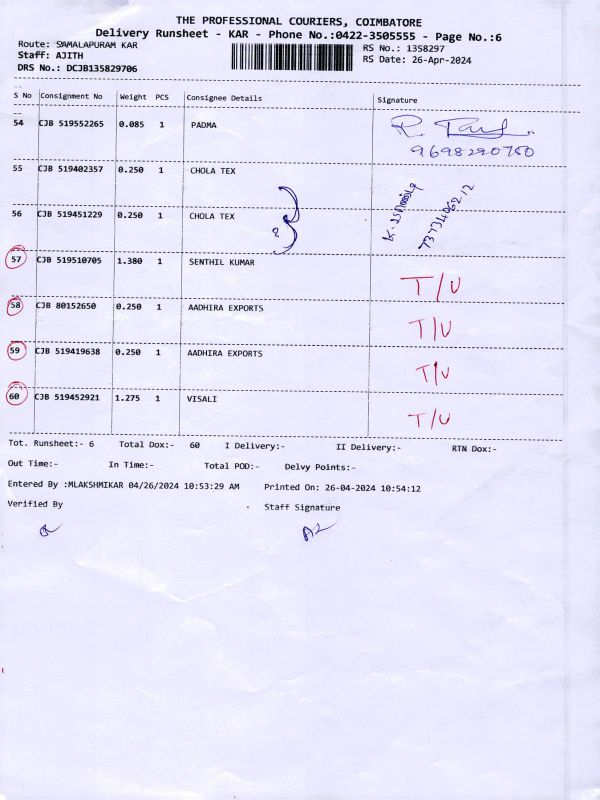 THE PROFESSIONAL COURIERS, COIMBATORE
Delivery Runsheet - KAR - Phone No.:0422-3505555 - Page No.:6
Route: SAMALAPURAM KAR RS No.: 1358297
Staff: AJITH RS Date: 26-Apr-2024
DRS No.: DCJB135829706
S No Consignment No Weight PCS Consignee Details Signature
54 CJB 519552265 0.085 1 PADMA
9698290750
55 CJB 519402357 0.250 1 CHOLA TEX
56 CJB 519451229 0.250 1 CHOLA TEX
2
57 CJB 519510705 1.380 1 SENTHIL KUMAR T/U
58 CJB 80152650 0.250 1 AADHIRA EXPORTS T/U
59 CJB 519419638 0.250 1 AADHIRA EXPORTS T/U
60 CJB 519452921 1.275 1 VISALI T/U
Tot. Runsheet:- 6 Total Dox:- 60 I Delivery:- II Delivery:- RTN Dox:-
Out Time:- In Time:- Total POD:- Delvy Points:-
Entered By :MLAKSHMIKAR 04/26/2024 10:53:29 AM Printed On: 26-04-2024 10:54:12
Verified By Staff Signature